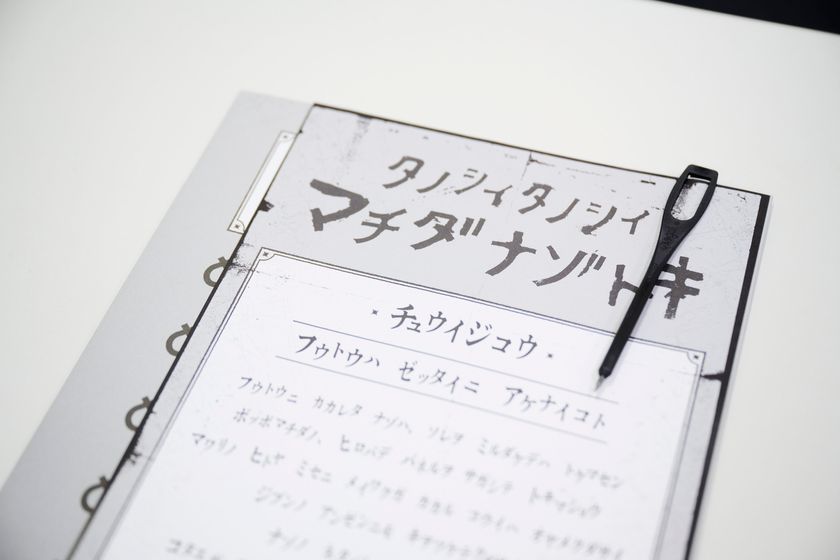 タノシイタノシイ
マチダナゾトキ
チュウイジョウ
フウトウハ ゼッタイニ アケナイコト
フウトウニ カカレタ ナゾハ、ソレヲ ミルダケデハ トケマセン
ポッポマチダノ、ヒロバデ パネルヲ サガシテ トキマショウ
マワリノ ヒトヤ ミセニ メイワクガ カカル コウイハ
ジブンノ アンゼンニモ
ナゾノ